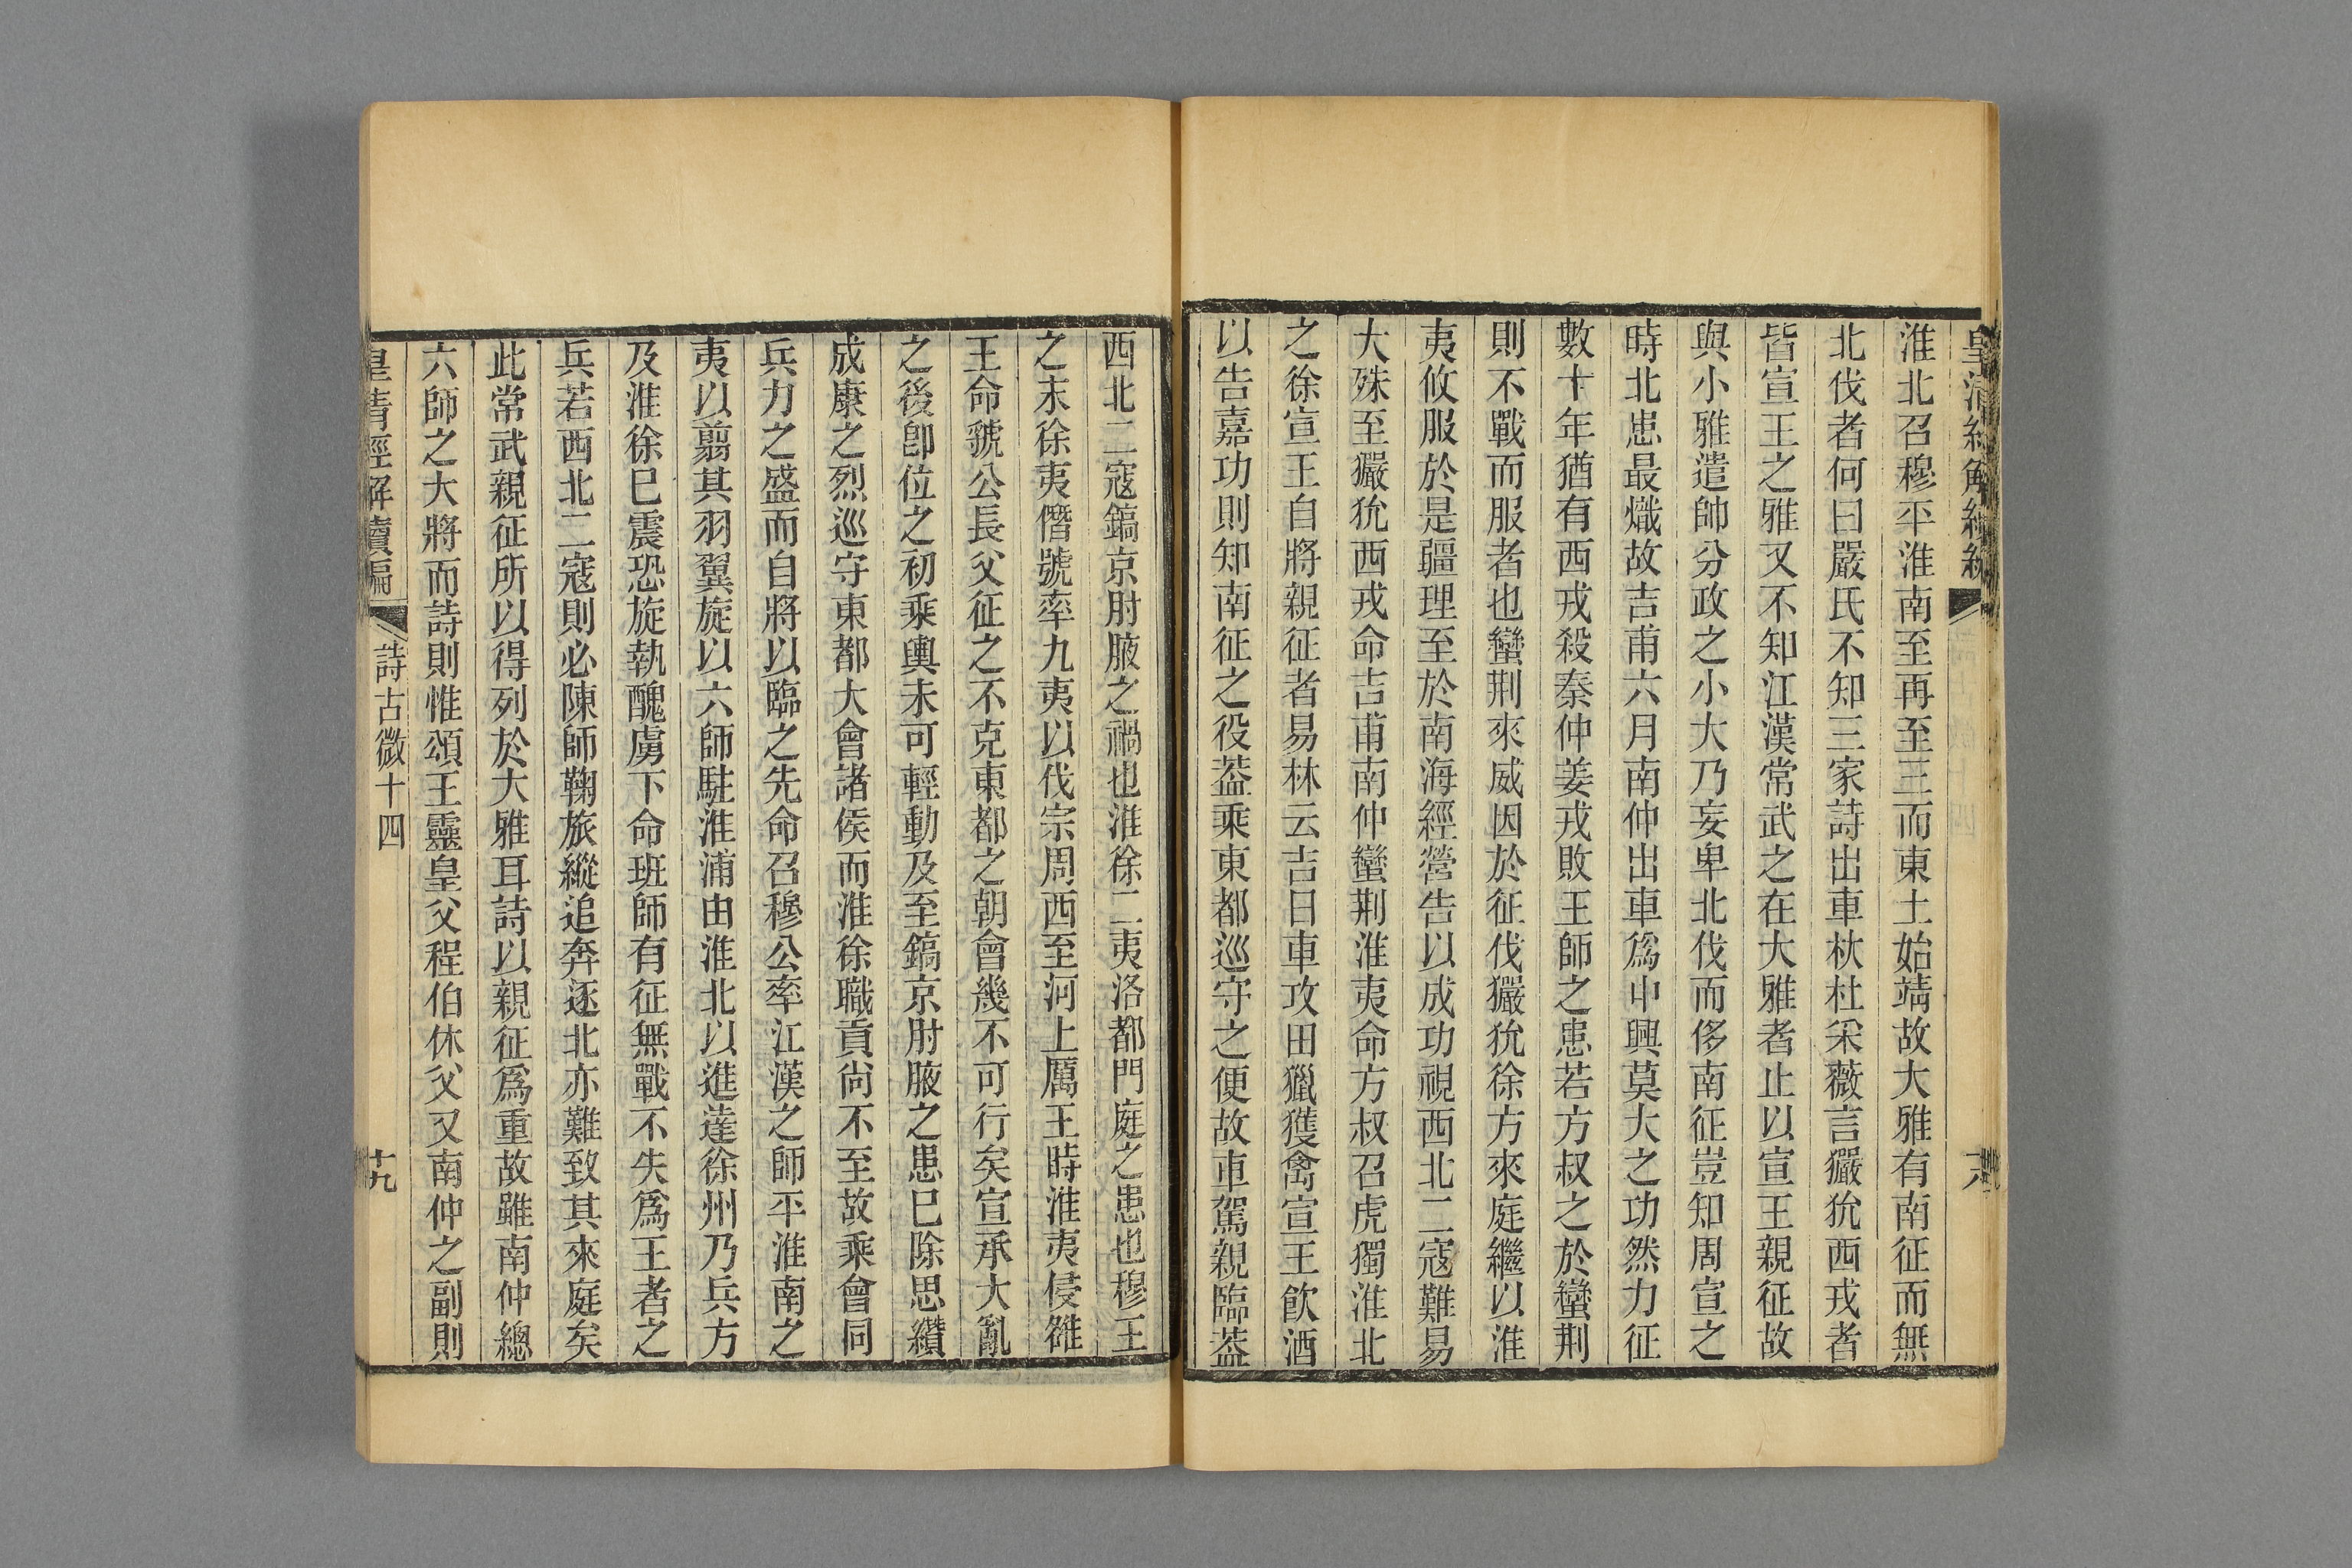 皇清經解續編
淮北召穆平淮南至再至三而東土始靖故大雅有南征而無
北伐者何曰嚴氏不知三家詩出車杕杜采薇言玁狁西戎者
皆宣王之雅又不知江漢常武之在大雅者止以宣王親征故
與小雅遣帥分政之小大乃妄卑北伐而侈南征豈知周宣之
時北患最熾故吉甫六月南仲出車爲中興莫大之功然力征
數十年猶有西戎殺秦仲姜戎敗王師之患若方叔之於蠻荆
則不戰而服者也蠻荆來威因於征伐玁狁徐方來庭繼以淮
夷攸服於是疆理至於南海經營告以成功視西北二寇難易
大殊至玁狁西戎命吉甫南仲蠻荆淮夷命方叔召虎獨淮北
之徐宣王自將親征者易林云吉日車攻田獵獲禽宣王飮酒
以告嘉功則知南征之役葢乘東都巡守之便故車駕親臨葢
西北二寇鎬京肘腋之禍也淮徐二夷洛都門庭之患也穆王
之末徐夷僭號率九夷以伐宗周西至河上厲王時淮夷侵雒
王命虢公長父征之不克東都之朝會幾不可行矣宣承大亂
之後卽位之初乘輿未可輕動及至鎬京肘腋之患巳除思纘
成康之烈巡守東都大會諸侯而淮徐職貢尙不至故乘會同
兵力之盛而自將以臨之先命召穆公率江漢之師平淮南之
夷以翦其羽翼旋以六師駐淮浦由淮北以進達徐州乃兵方
及淮徐巳震恐旋執醜虜下命班師有征無戰不失爲王者之
兵若西北二寇則必陳師鞠旅縱追奔逐北亦難致其來庭矣
此常武親征所以得列於大雅耳詩以親征爲重故雖南仲總
六師之大將而詩則惟頌王靈皇父程伯休父又南仲之副則
皇清經解續編
詩古微十四
十九